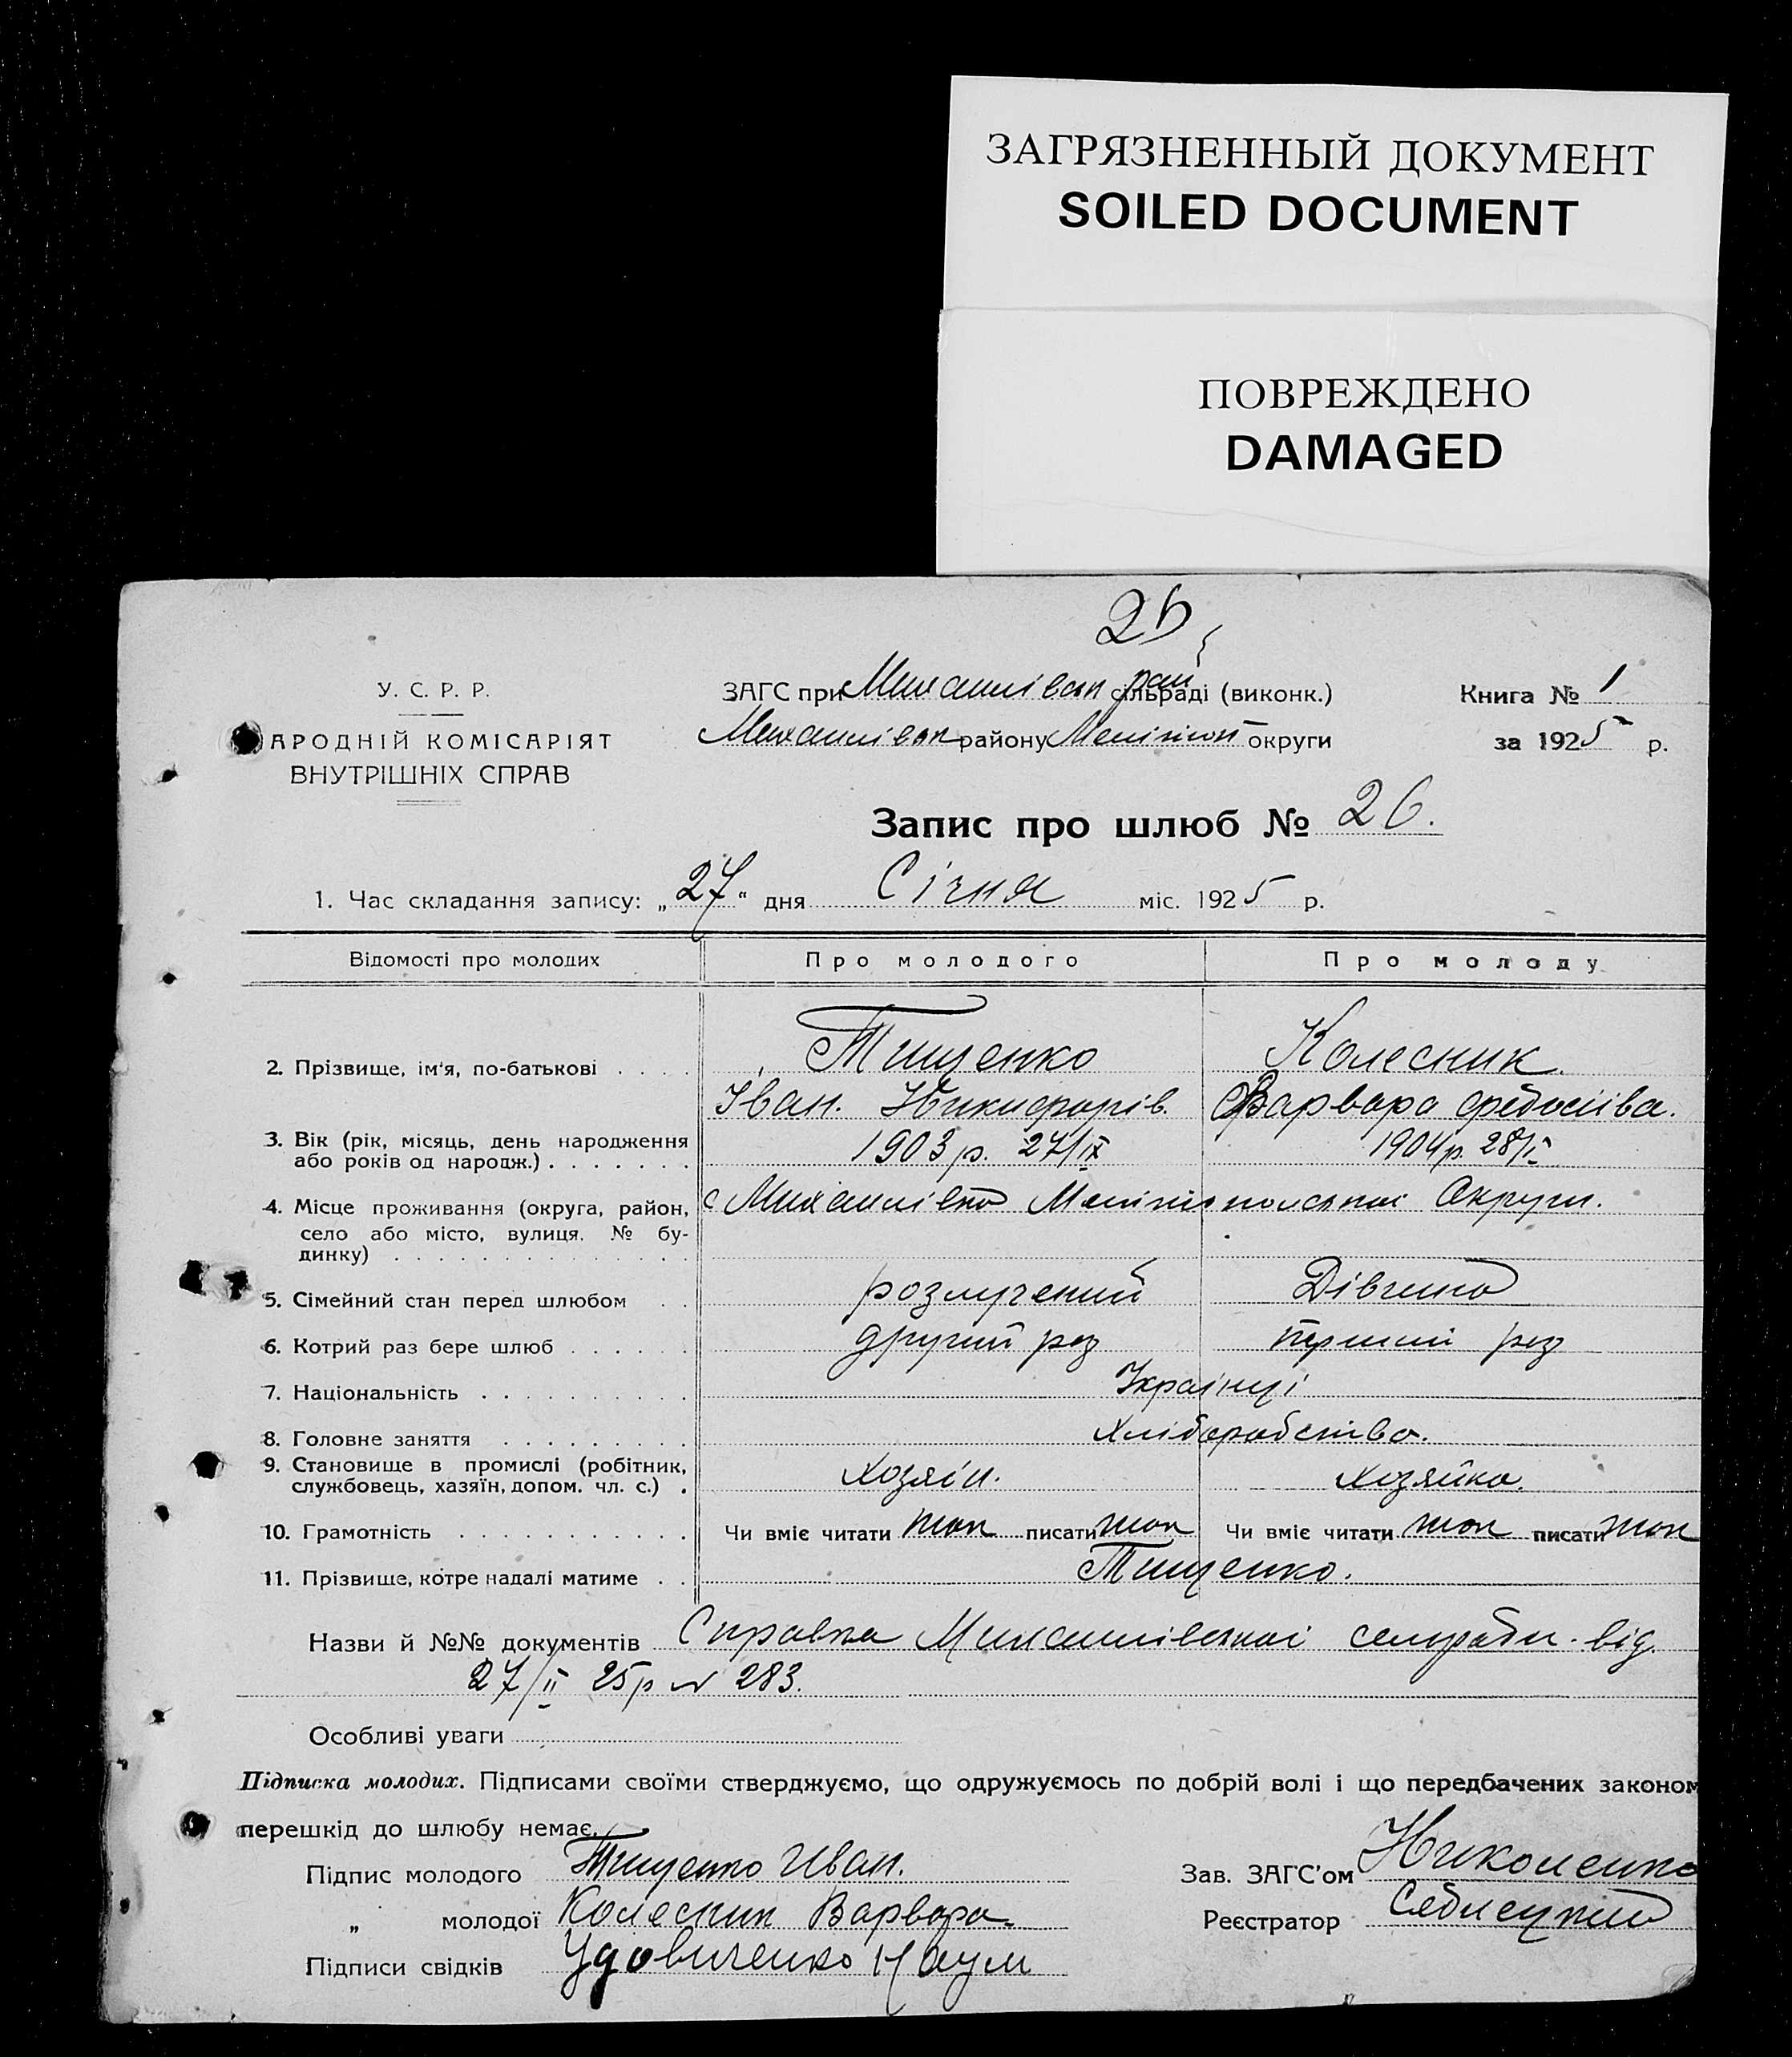 ЗАГРЯЗНЕННЫЙ ДОКУМЕНТ
SOILED DOCUMENT
ПОВРЕЖДЕНО
DAMAGED
26
У. С. Р. Р.
АРОДНІЙ КОМІСАРІЯТ
ВНУТРІШНІХ СПРАВ
ЗАГС при Михайлівськ рай сільраді (виконк.)
Михайлівськ району Мелітоп округи
Книга № 1
за 1925 р.
Запис про шлюб № 26.
1. Час складання запису: „27“ дня Січня міс. 1925 р.
Відомості про молодих Про молодого Про молоду
2. Прізвище, ім'я, по-батькові . . . . Тищенко Колесник.
Іван. Никифорів. Варвара Федосіїва.
3. Вік (рік, місяць, день народження
або років од народж.) . . . . . . . 1903 р. 27/IX 1904 р. 28/
4. Місце проживання (округа, район,
село або місто, вулиця. № бу-
динку) . . . . . . . . . . .
с Михайлівка Мелітопольської Округи.
5. Сімейний стан перед шлюбом . . розлучений Дівчина
6. Котрий раз бере шлюб . . . . . . другий раз перший раз
7. Національність . . . . . . . . . . Українці
8. Головне заняття . . . . . . . . . Хліборобство.
9. Становище в промислі (робітник,
службовець, хазяїн, допом. чл. с.) . Хозяїн. Хозяйка.
10. Грамотність . . . . . . . . . . . Чи вміє читати так писати так Чи вміє читати так писати так
11. Прізвище, котре надалі матиме . . Тищенко.
Назви й №№ документів Справка Михайлівської сельради від.
27/II 25 р № 283.
Особливі уваги
Підписка молодих. Підписами своїми стверджуємо, що одружуємось по добрій волі і що передбачених законом
перешкід до шлюбу немає.
Підпис молодого Тищенко Иван.
„ молодої Колесник Варвара.
Підписи свідків Удовиченко Наум
Зав. ЗАГС'ом Николенко
Реєстратор